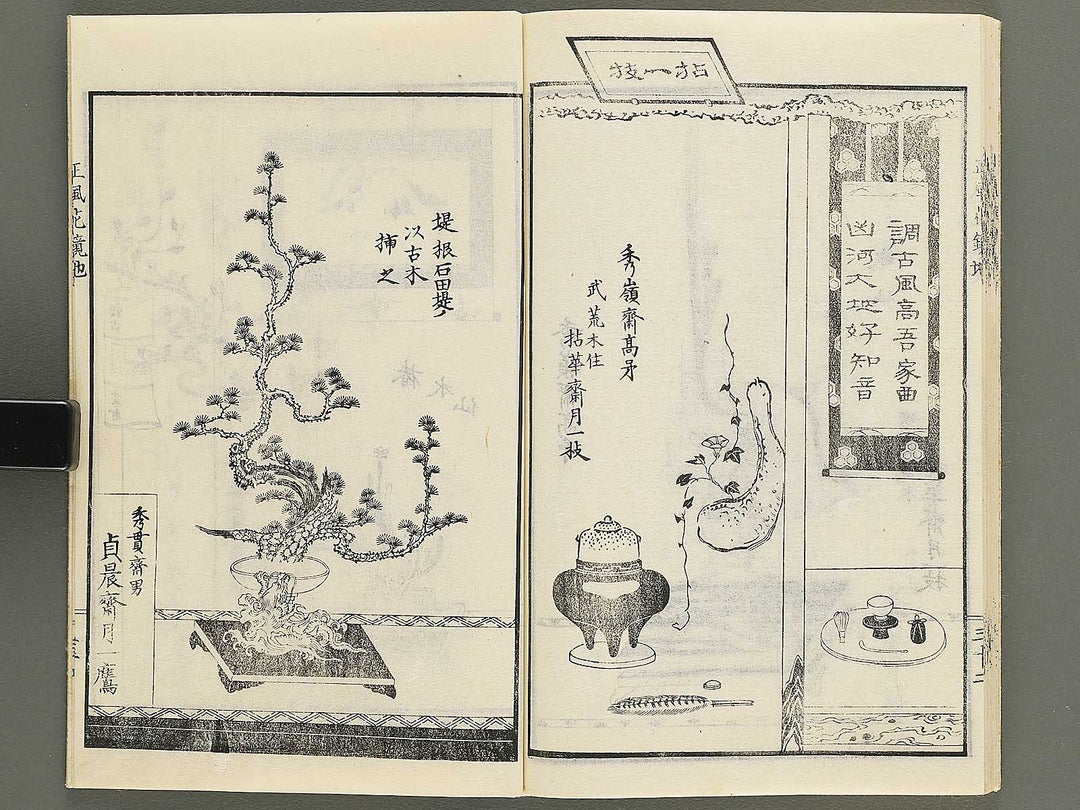 拈一枝
調古風高吾家曲
山河大地好知音
秀嶺齋高弟
武荒木住
拈華齋月一枝
堤根石田堤
以古木
挿之
秀貫齋男
貞晨齋月一鷹
正風花鏡地